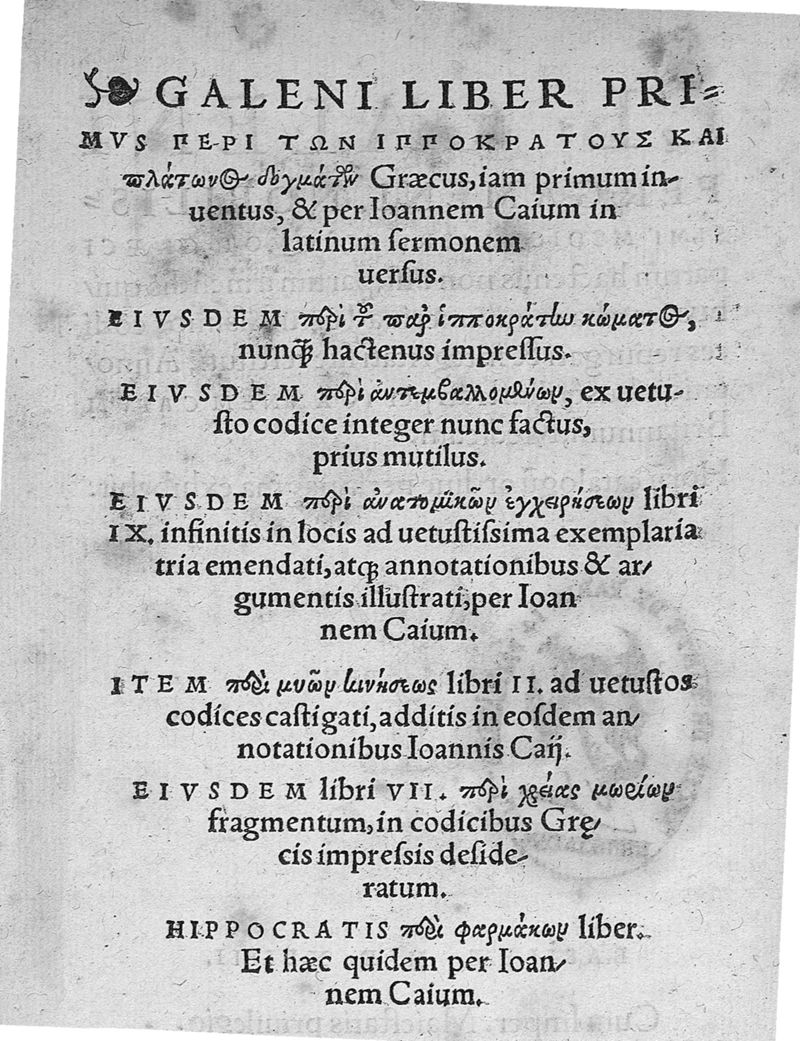 GALENI LIBER PRI-
MVS ΠΕΡΙ ΤΩΝ ΙΠΠΟΚΡΑΤΟΥΣ ΚΑΙ
πλάτωνος δογμάτων Græcus, iam primum in-
uentus, & per Ioannem Caium in
latinum sermonem
uersus.
EIVSDEM περὶ τοῦ παρ' ἱπποκράτει κώματος,
nunq̃ hactenus impressus.
EIVSDEM περὶ ἀντεμβαλλομένων, ex uetu-
sto codice integer nunc factus,
prius mutilus.
EIVSDEM περὶ ἀνατομικῶν ἐγχειρήσεων libri
IX. infinitis in locis ad uetustissima exemplaria
tria emendati, atq; annotationibus & ar-
gumentis illustrati, per Ioan
nem Caium.
ITEM περὶ μυῶν κινήσεως libri II. ad uetustos
codices castigati, additis in eosdem an-
notationibus Ioannis Caij.
EIVSDEM libri VII. περὶ χρείας μορίων
fragmentum, in codicibus Grę-
cis impressis deside-
ratum.
HIPPOCRATIS περὶ φαρμάκων liber.
Et hæc quidem per Ioan-
nem Caium.